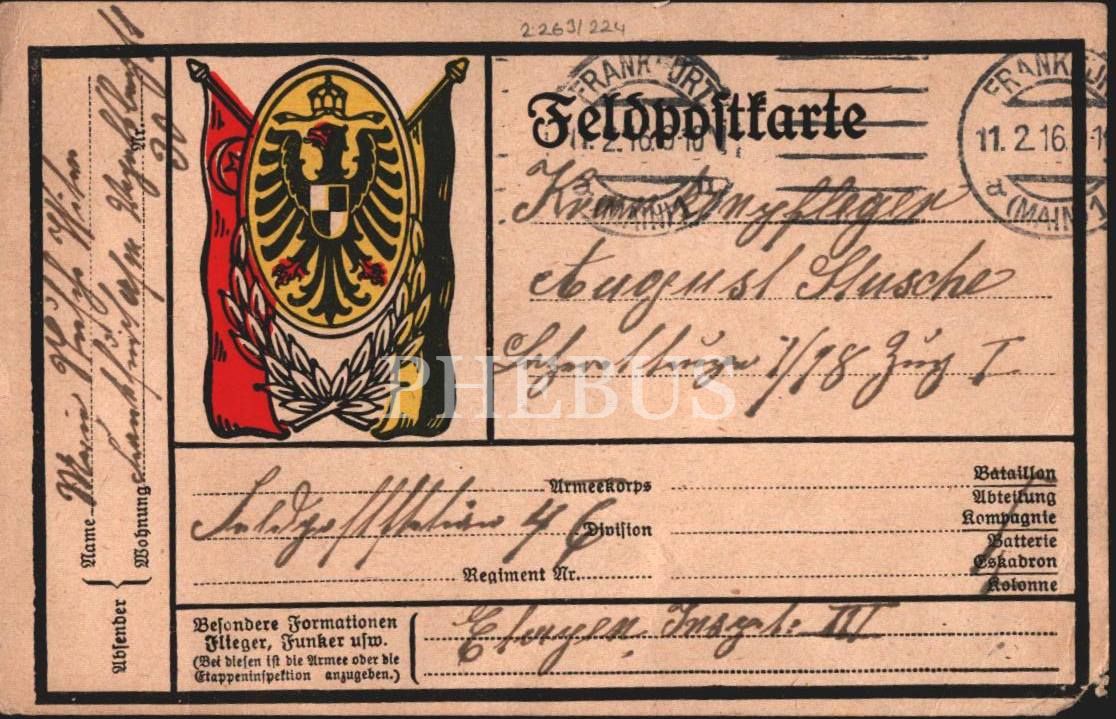 2263/224
Feldpostkarte
FRANKFURT
11.2.16.9-10
a
(MAIN) 1
FRANKFUR
11.2.16.
a
(MAIN) 1
Krankenpfleger
August Stusche
7/18 Zug I.
PHEBUS
Armeekorps
Feldpoststation 46
Division
Regiment Nr.
Bataillon
Abteilung
Kompagnie
Batterie
Eskadron
Kolonne
Besondere Formationen
Flieger, Funker usw.
(Bei diesen ist die Armee oder die
Etappeninspektion anzugeben.)
Etappen. Inspt: IV
Absender
Name
Wohnung
Nr.
30